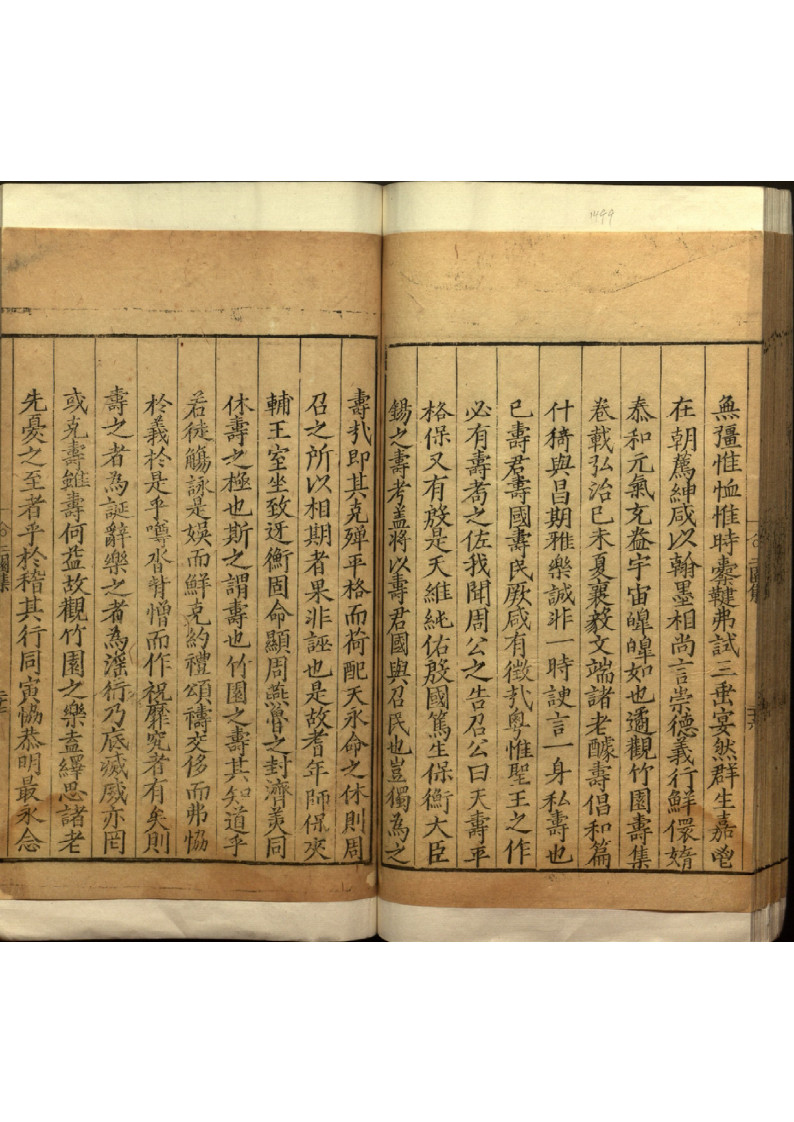 1499
無彊惟恤惟時櫜鞬弗試三垂宴然群生嘉鬯
在朝薦紳咸以翰墨相尚言崇德義行鮮儇媠
泰和元氣充盎宇宙皥皥如也遹觀竹園壽集
卷載弘治己未夏襄毅文端諸老醵壽倡和篇
什猗與昌期雅樂誠非一時諛言一身私壽也
已壽君壽國壽民厥咸有徵㢤粵惟聖王之作
必有壽耇之佐我聞周公之告召公曰天壽平
格保乂有殷是天維純佑殷國篤生保衡大臣
錫之壽考盖將以壽君國與召民也豈獨為之
壽㢤即其克殫平格而荷配天永命之休則周
召之所以相期者果非誣也是故耆年師保夾
輔王室坐致迓衡固命顯周燕曾之封濟羙同
休壽之極也斯之謂壽也竹園之壽其知道乎
若徒觴詠是娛而鮮克約禮頌禱交侈而弗恊
於義於是乎噂沓背憎而作祝靡究者有矣則
壽之者為誕辭樂之者為滛行乃底滅威亦罔
或克壽雖壽何益故觀竹園之樂盍繹思諸老
先憂之至者乎於稽其行同寅恊恭明最永念